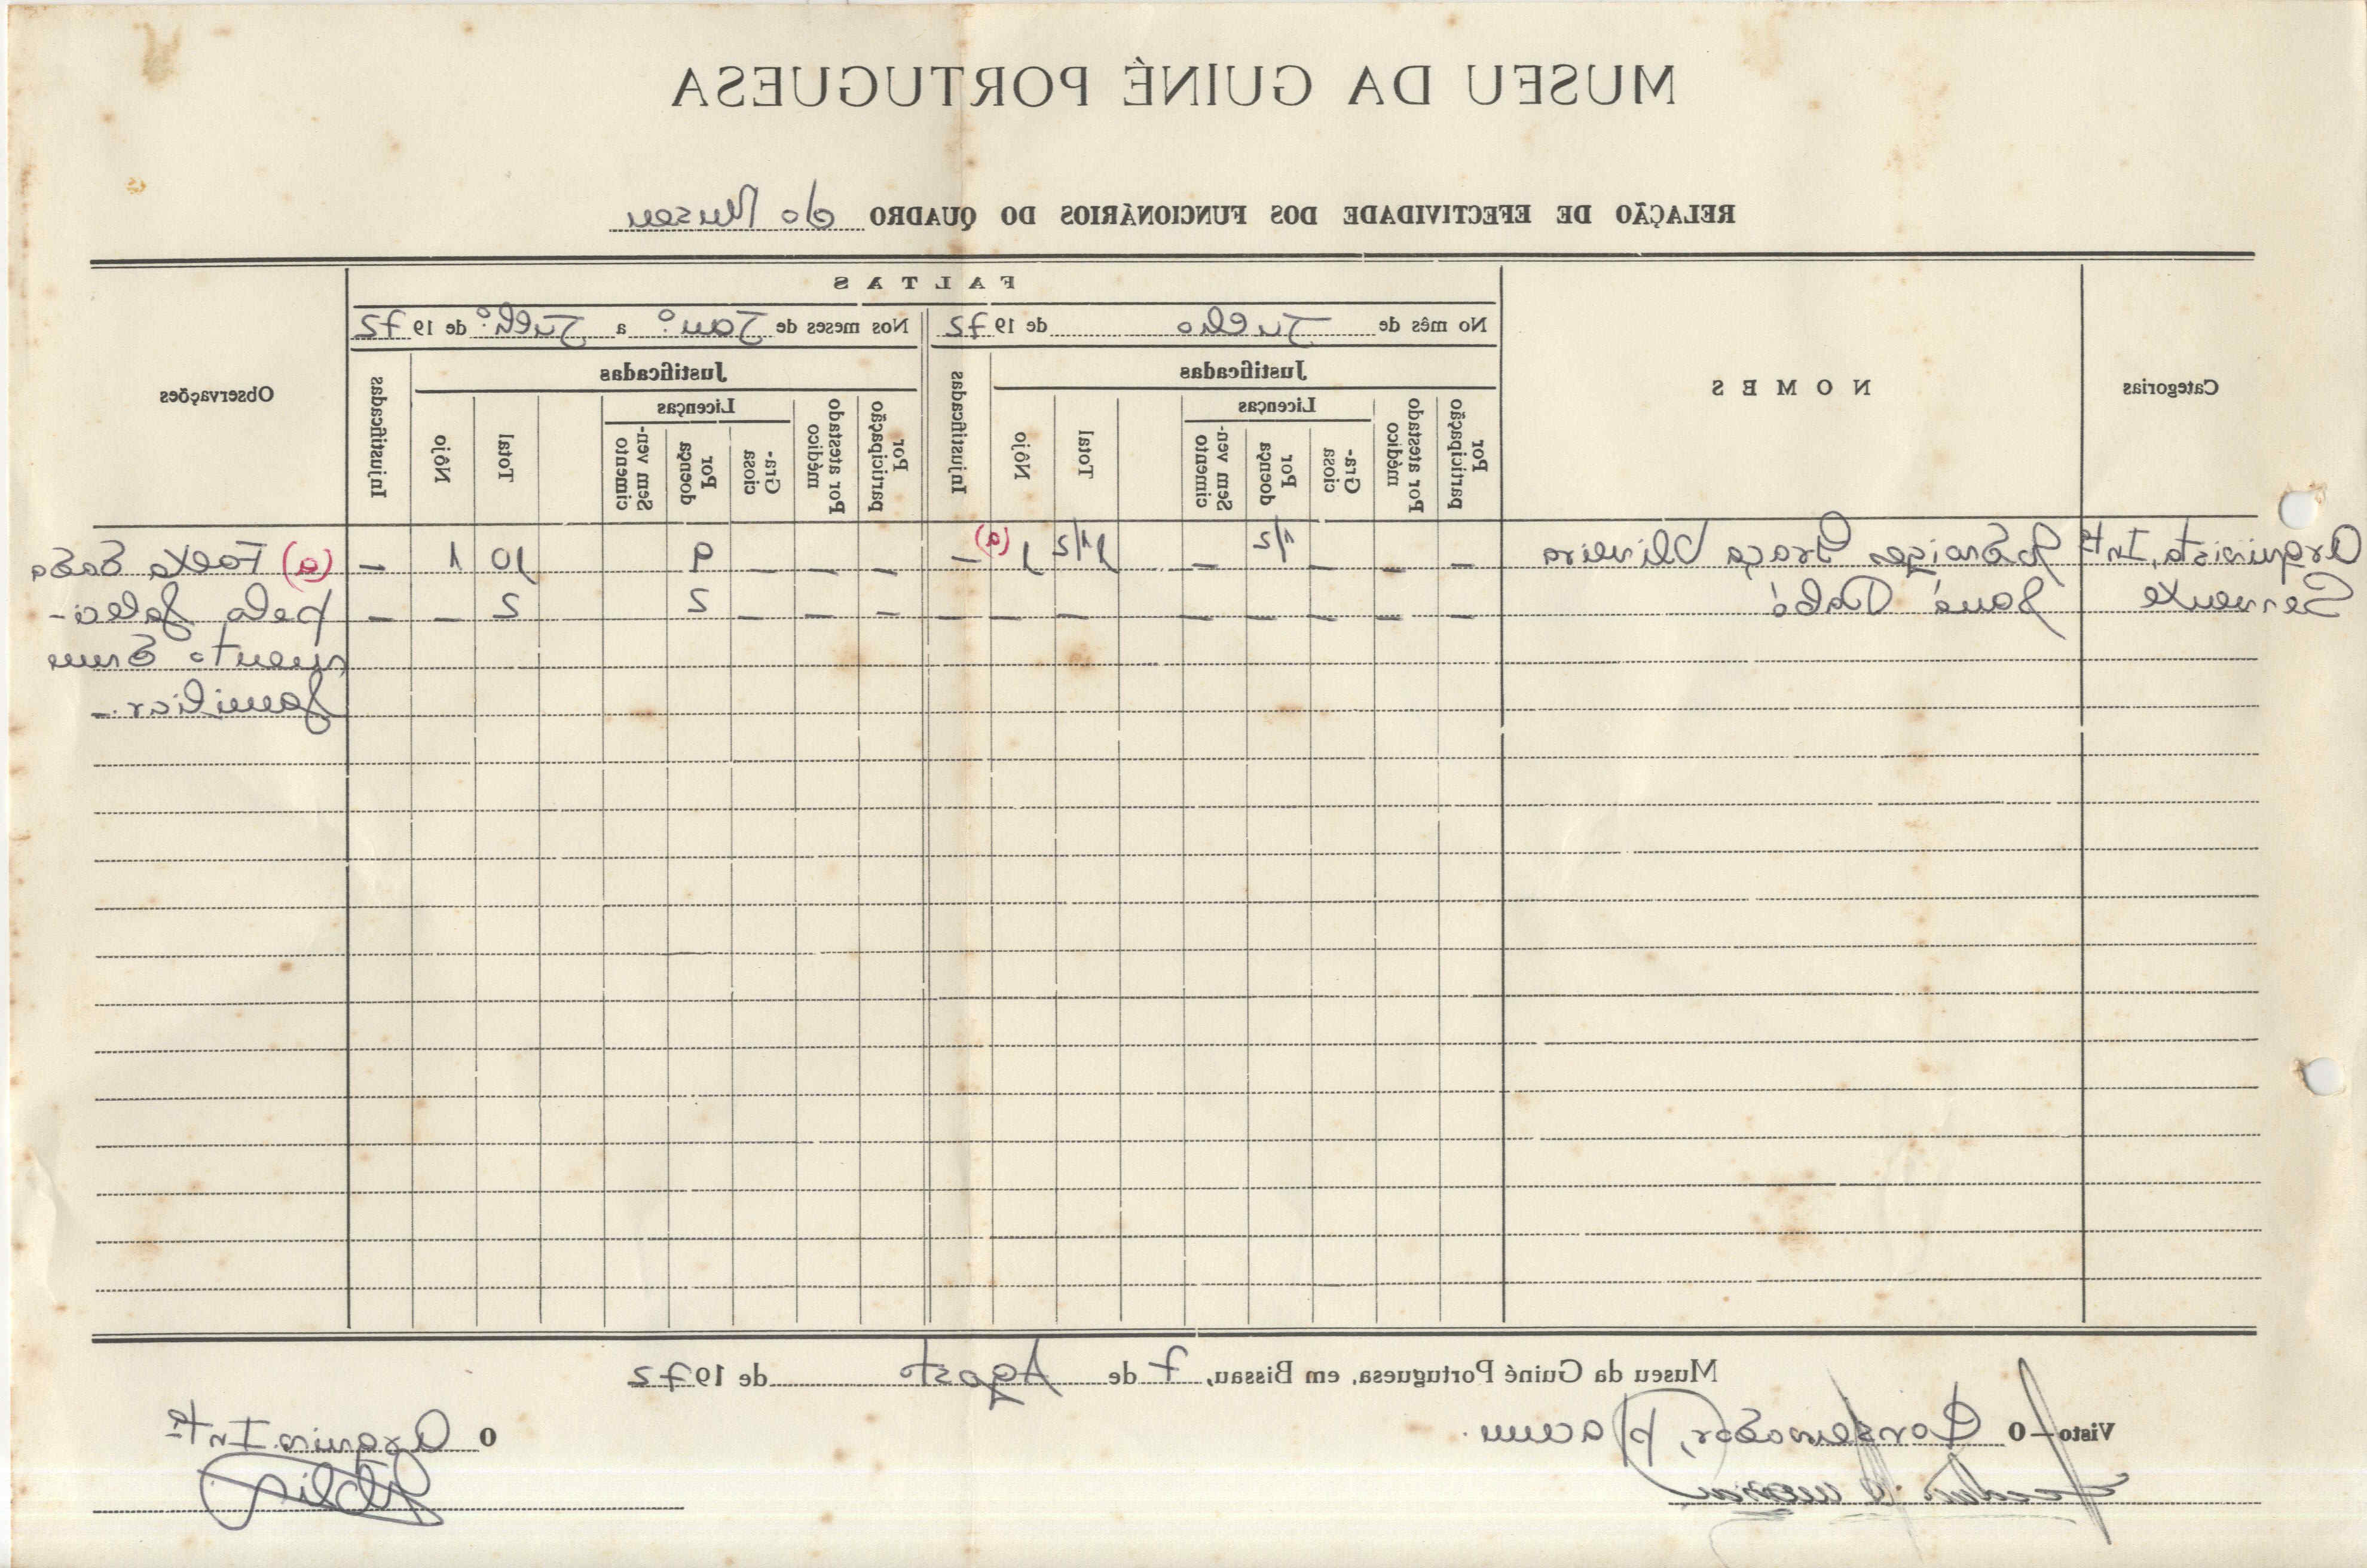 MUSEU DA GUINÉ PORTUGUESA
RELAÇÃO DE EFECTIVIDADE DOS FUNCIONÁRIOS DO QUADRO do Museu
Categorias
NOMES
FALTAS
No mês de Julho de 1972
Nos meses de Janº. a Julhº. de 1972
Observações
Justificadas
Injustificadas
Justificadas
Injustificadas
Por participação
Por atestado médico
Licenças
Gra-ciosa
Por doença
Sem ven-cimento
Total
Nôjo
Por participação
Por atestado médico
Licenças
Gra-ciosa
Por doença
Sem ven-cimento
Total
Nôjo
Arquivista, Intº Graça Oliveira - - - 1/2 - 1 1/2 1 (a) - - - - 9 10 1 - (a) Falta dada
Servente - - - - - - - - - - - 2 2 - - pela faleci-
mento dum
familiar.-
Museu da Guiné Portuguesa, em Bissau, 7 de Agosto de 1972
Visto-O Conservador, p/acum.
O Arquiv. Intº